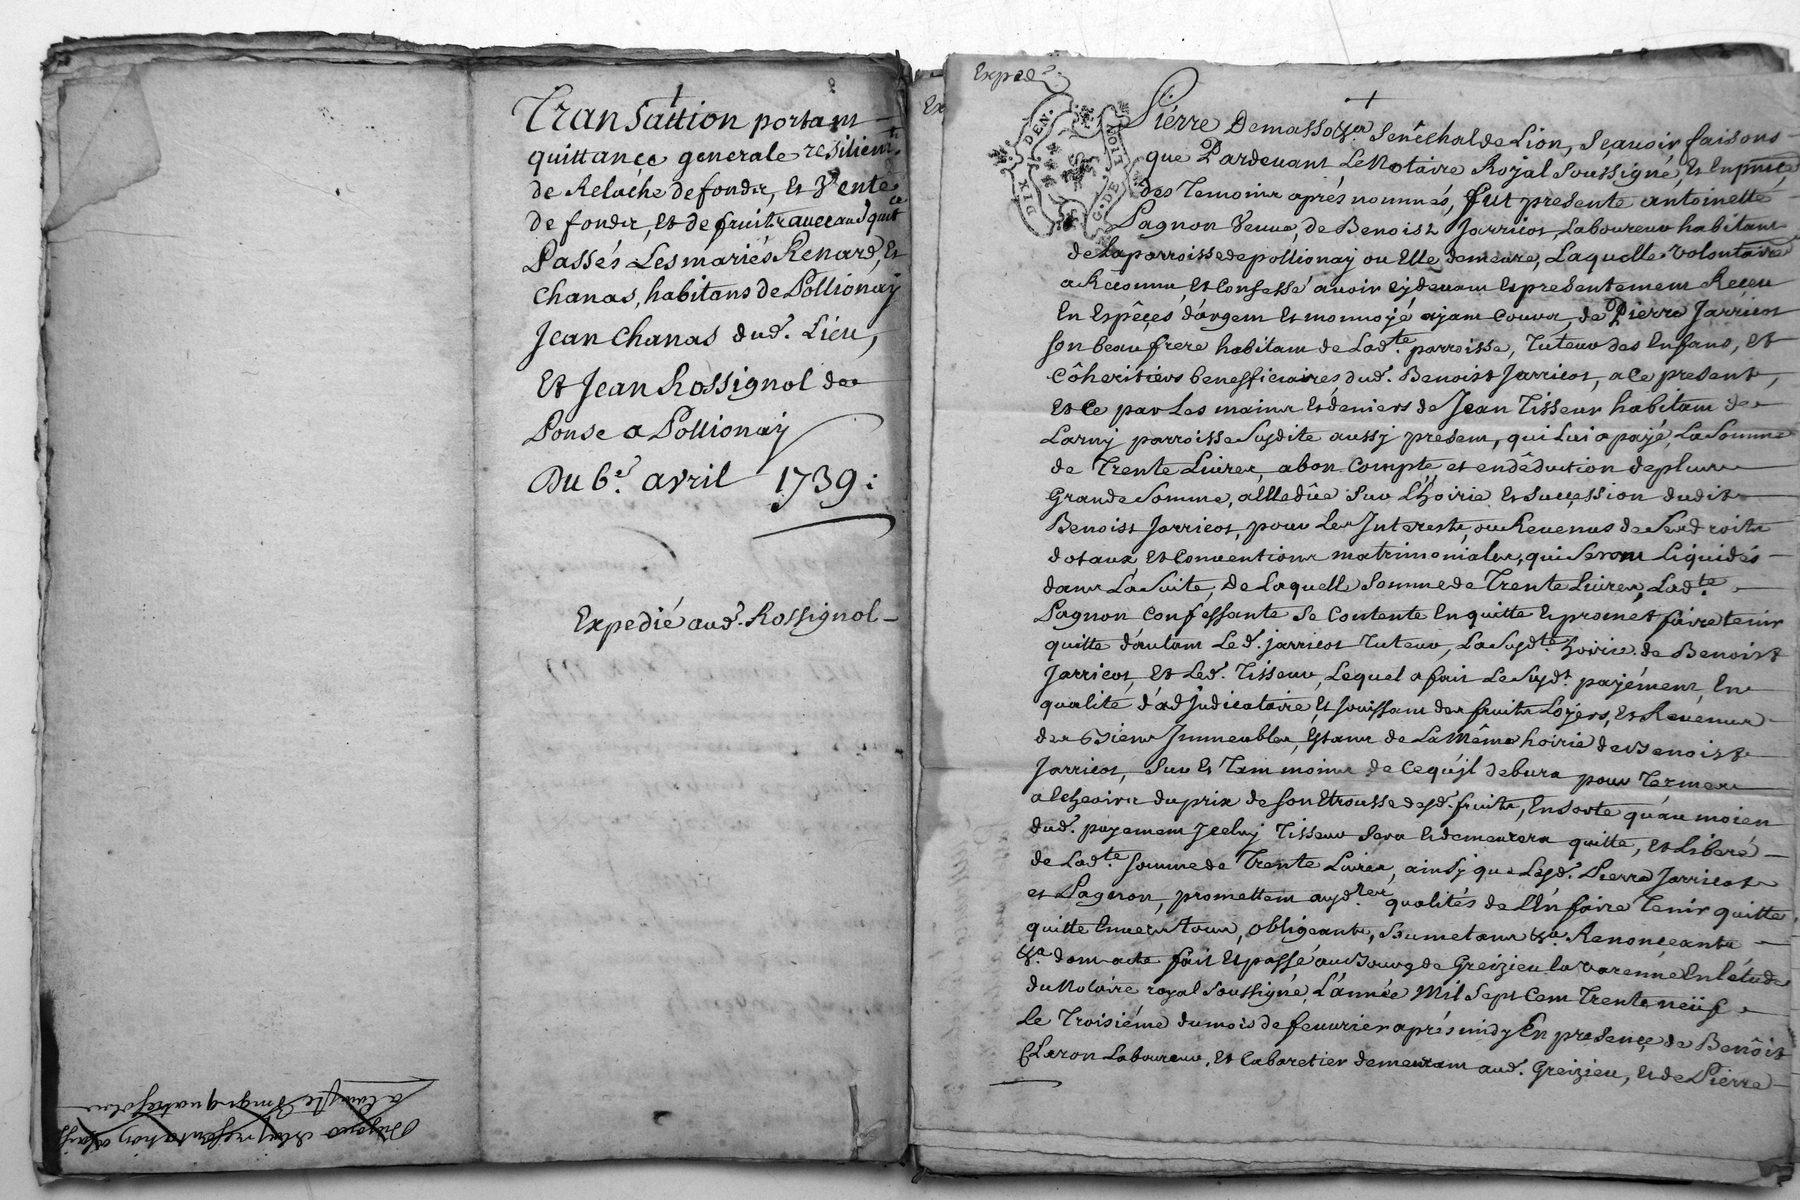 Transaction portant
quittance generale resiliem.t
de Relache de fonds, Et Vente
de fonds, Et de fruits avec aud quitce
Passés Les mariés Renard, Et
Chanas, habitans de Pollionay
Jean Chanas dud. Lieu,
Et Jean Rossignol de
Ponse a Pollionay
Du 6e. avril 1739:
Expedié aud. Rossignol
Exped
DIX DEN. G. DE LION
Pierre Demasso &a Senêchal de Lion, Sçavoir faisons
que Pardevant Le Notaire Royal Soussigné, Et En
des Temoins aprés nommés, fut presente antoinette
Pagnon Veuve, de Benoist Jarricot Laboureur habitant
de La parroisse de pollionay ou Elle demeure, Laquelle volontaire
a Reconnu, Et Confessé avoir cy devant Et presentement Receu
En Espêçes d'argent Et monnoyé ayant Cours, de Pierre Jarricot
son beau frere habitant de Ladte. parroisse, Tuteur des Enfans, Et
Côheritiers benefficiaires dud. Benoist Jarricot, a Ce present,
Et Ce par Les mains Et deniers de Jean Tisseur habitant de
Larny parroisse Susdite aussy present, qui Lui a payé La Somme
de Trente Livres, a bon Compte et en dêduction de plus
Grande Somme, a Elle dûe Sur L'hoirie Et Succession dudit
Benoist Jarricot, pour Les Interests, ou Revenus de Ses droits
dotaux, Et Conventions matrimoniales, qui Seront Liquidés
dans La Suite, De Laquelle Somme de Trente Livres, Ladte.
Pagnon Confessante Se Contente En quitte Et promet faire tenir
quitte d'autant Led. Jarricot Tuteur, La Susdte hoirie de Benoist
Jarricot, Et Led. Tisseur, Lequel a fait Le Susdt. payément, En
qualité d'adjudicataire, Et Jouissant des fruits Loyers, Et Revenus
des Biens Immeubles, Estans de La Même hoirie de Benoist
Jarricot, Sur Et Tant moins de Ce qu'il debvra pour Termes
a Echeoirs du prix de Son Etrousse desd. fruits, En Sorte qu'au moien
dud. payement Icelny Tisseur Sera Et demeurera quitte, Et Liberé
de Ladte Somme de Trente Livres, ainsy que Lesd. Pierre Jarricot
et Pagnon, promettent qualités de L'En faire Tenir quitte
quitte Envers tous, obligeants, Soumetans &a. Renonceants
&a. dont acte fait Et passé au Bourg de Greizieu la varenne En L'étude
du Notaire royal Soussigné, L'année Mil Sept Cent Trente neuf
Le Troisiéme du mois de fevvrier aprés midy En presençe de Benôist
Claron Laboureur, Et Cabaretier demeurant aud. Greizieu, Et de Pierre